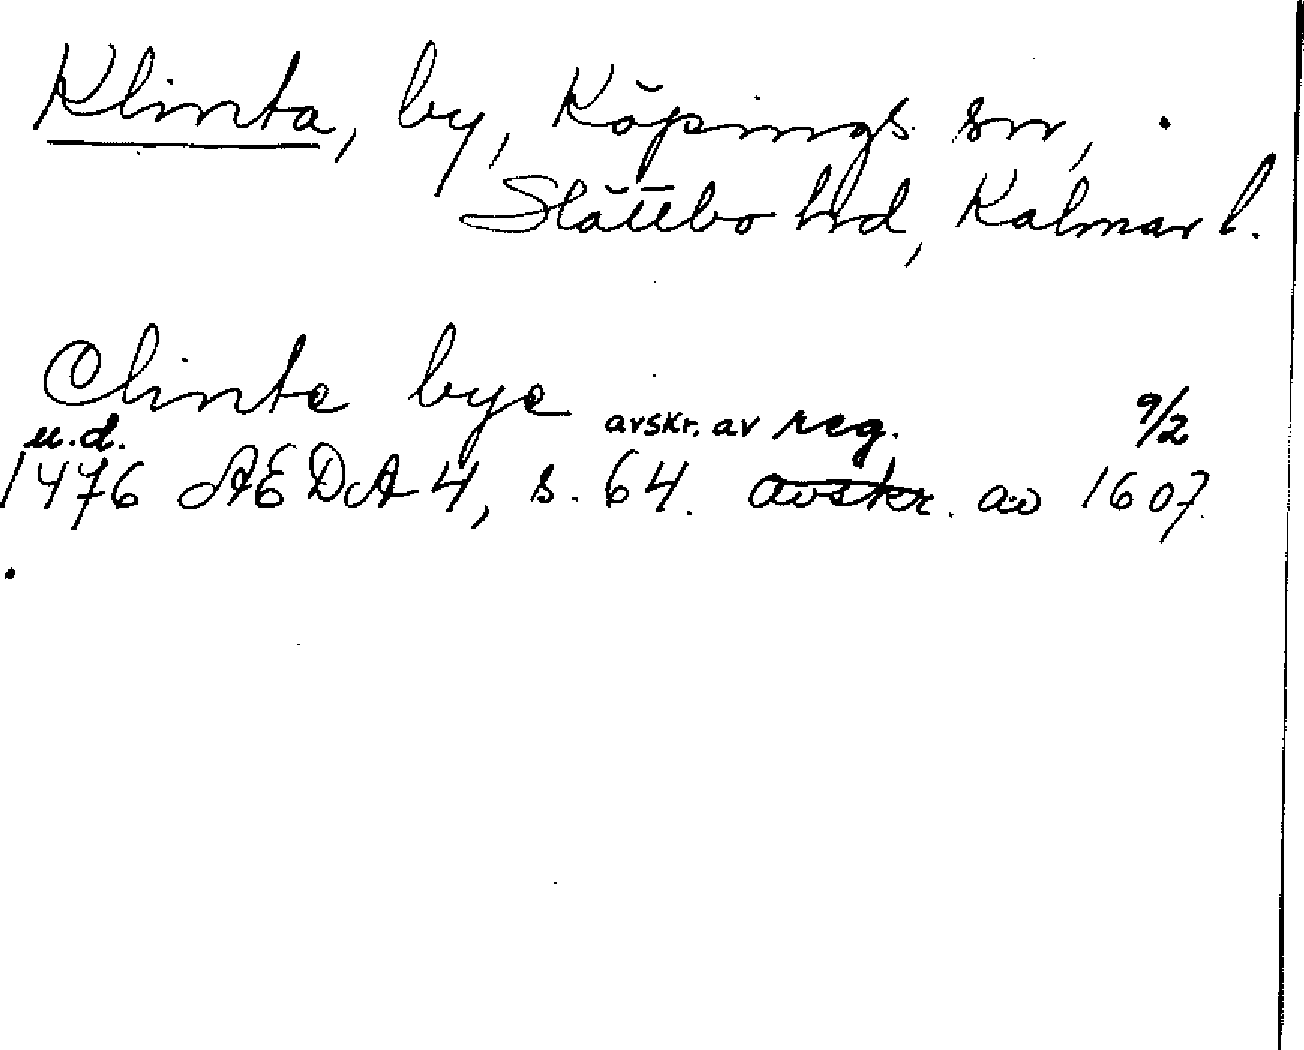 Klinta, by, Köpings sn,
Slättbo hd, Kalmar l.
Clinte bye
u.d. avskr. av reg. 9/2
1476 ÆDA 4, s. 64. avskr. av 1607.